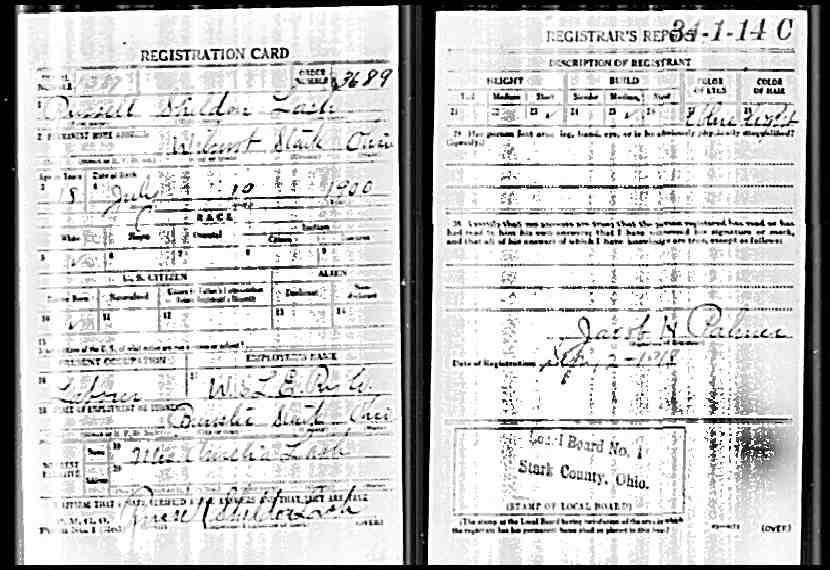 REGISTRATION CARD
SERIAL NUMBER
ORDER NUMBER 3689
1 Russell Sheldon Lash
2 PERMANENT HOME ADDRESS
Wilmot Stark Ohio
Age in Years Date of Birth
3 18 4 July 10 1900
RACE
White Negro Oriental Indian
Citizen
5 6 7 8 9
U. S. CITIZEN ALIEN
Native Born Naturalized Citizen by Father's Naturalization Declarant Non-declarant
10 11 12 13 14
15
PRESENT OCCUPATION EMPLOYER'S NAME
16 Laborer 17 W. & L. E. Ry. Co.
18 PLACE OF EMPLOYMENT OR BUSINESS
Stark Ohio
NEAREST RELATIVE
Name 19 Mrs Lash
Address 20
I AFFIRM THAT I HAVE VERIFIED ABOVE ANSWERS AND THAT THEY ARE TRUE
P. M. G. O.
Form No. 1 (Red)
Russell Sheldon Lash
(OVER)
REGISTRAR'S REPORT 34-1-14 C
DESCRIPTION OF REGISTRANT
HEIGHT BUILD COLOR OF EYES COLOR OF HAIR
Tall Medium Short Slender Medium Stout
21 22 23 24 25 26 27 blue 28 Light
29 Has person lost arm, leg, hand, eye, or is he obviously physically disqualified?
(Specify.)
30 I certify that my answers are true; that the person registered has read or has
had read to him his own answers; that I have witnessed his signature or mark,
and that all of his answers of which I have knowledge are true, except as follows:
Jacob H Palmer
Date of Registration Sep 12-1918
Local Board No. 1
Stark County, Ohio.
(STAMP OF LOCAL BOARD)
(The stamp of the Local Board having jurisdiction of the area in which
the registrant has his permanent home shall be placed in this box.)
(OVER)